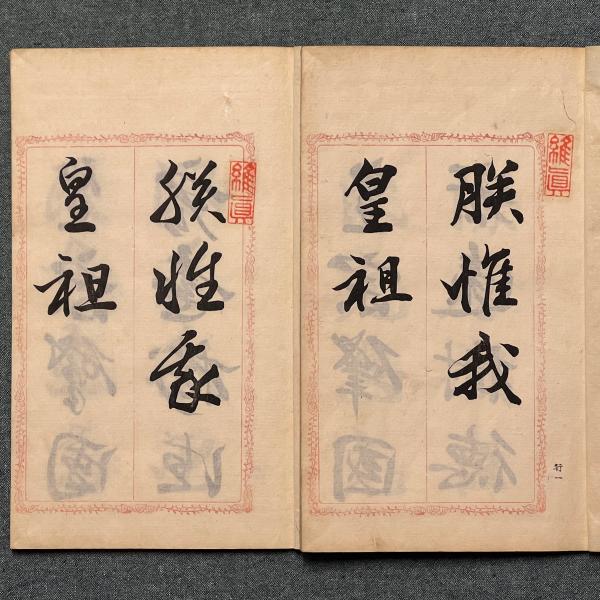 維眞
朕惟我
皇祖
行一
維眞
朕惟我
皇祖